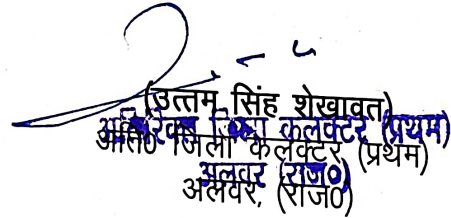 (उत्तम सिंह शेखावत)
अतिरिक्त जिला कलक्टर (प्रथम)
अति0 जिला कलेक्टर, (प्रथम)
अलवर (राज0)
अलवर, (राज0)